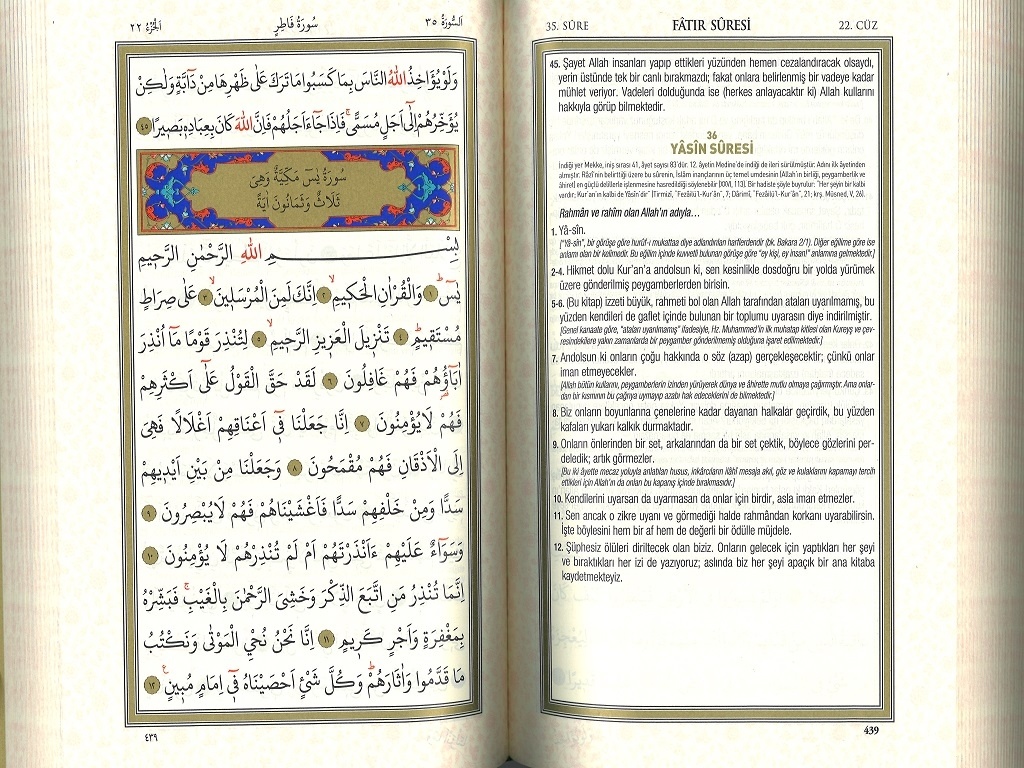 اَلْجُزْءُ ٢٢ سُورَةُ فَاطِرٍ اَلسُّورَةُ ٣٥
وَلَوْ يُؤَاخِذُ اللّٰهُ النَّاسَ بِمَا كَسَبُوا مَا تَرَكَ عَلٰى ظَهْرِهَا مِنْ دَٓابَّةٍ وَلٰكِنْ
يُؤَخِّرُهُمْ اِلٰٓى اَجَلٍ مُسَمًّىۚ فَاِذَا جَٓاءَ اَجَلُهُمْ فَاِنَّ اللّٰهَ كَانَ بِعِبَادِه۪ بَص۪يرًا ٤٥
سُورَةُ يٰسٓ مَكِّيَّةٌ وَهِىَ
ثَلَاثٌ وَثَمَانُونَ اٰيَةً
بِسْمِ اللّٰهِ الرَّحْمٰنِ الرَّح۪يمِ
يٰسٓۜ ١ وَالْقُرْاٰنِ الْحَك۪يمِۙ ٢ اِنَّكَ لَمِنَ الْمُرْسَل۪ينَۙ ٣ عَلٰى صِرَاطٍ
مُسْتَق۪يمٍۜ ٤ تَنْز۪يلَ الْعَز۪يزِ الرَّح۪يمِۙ ٥ لِتُنْذِرَ قَوْمًا مَٓا اُنْذِرَ
اٰبَٓاؤُ۬هُمْ فَهُمْ غَافِلُونَ ٦ لَقَدْ حَقَّ الْقَوْلُ عَلٰٓى اَكْثَرِهِمْ
فَهُمْ لَا يُؤْمِنُونَ ٧ اِنَّا جَعَلْنَا ف۪ٓى اَعْنَاقِهِمْ اَغْلَالًا فَهِىَ
اِلَى الْاَذْقَانِ فَهُمْ مُقْمَحُونَ ٨ وَجَعَلْنَا مِنْ بَيْنِ اَيْد۪يهِمْ
سَدًّا وَمِنْ خَلْفِهِمْ سَدًّا فَاَغْشَيْنَاهُمْ فَهُمْ لَا يُبْصِرُونَ ٩
وَسَوَٓاءٌ عَلَيْهِمْ ءَاَنْذَرْتَهُمْ اَمْ لَمْ تُنْذِرْهُمْ لَا يُؤْمِنُونَ ١٠
اِنَّمَا تُنْذِرُ مَنِ اتَّبَعَ الذِّكْرَ وَخَشِىَ الرَّحْمٰنَ بِالْغَيْبِۚ فَبَشِّرْهُ
بِمَغْفِرَةٍ وَاَجْرٍ كَر۪يمٍ ١١ اِنَّا نَحْنُ نُحْيِ الْمَوْتٰى وَنَكْتُبُ
مَا قَدَّمُوا وَاٰثَارَهُمْۜ وَكُلَّ شَىْءٍ اَحْصَيْنَاهُ ف۪ٓى اِمَامٍ مُب۪ينٍ۟ ١٢
٤٣٩
35. SÛRE FÂTIR SÛRESİ 22. CÜZ
45. Şayet Allah insanları yapıp ettikleri yüzünden hemen cezalandıracak olsaydı,
yerin üstünde tek bir canlı bırakmazdı; fakat onlara belirlenmiş bir vadeye kadar
mühlet veriyor. Vadeleri dolduğunda ise (herkes anlayacaktır ki) Allah kullarını
hakkıyla görüp bilmektedir.
36
YÂSİN SÛRESİ
İndiği yer Mekke, iniş sırası 41, âyet sayısı 83'dür. 12. âyetin Medine'de indiği de ileri sürülmüştür. Adını ilk âyetinden
almıştır. Râzî'nin belirttiği üzere bu sûrenin, İslâm inançlarının üç temel umdesinin (Allah'ın birliği, peygamberlik ve
âhiret) en güçlü delillerle işlenmesine hasredildiği söylenebilir (XXVI, 113). Bir hadiste şöyle buyrulur: "Her şeyin bir kalbi
vardır; Kur'an'ın kalbi de Yâsîn'dir" (Tirmizî, "Fezâilü'l-Kur'ân", 7; Dârimî, "Fezâilü'l-Kur'ân", 21; krş. Müsned, V, 26).
Rahmân ve rahîm olan Allah'ın adıyla...
1. Yâ-sîn.
["Yâ-sîn", bir görüşe göre hurûf-ı mukattaa diye adlandırılan harflerdendir (bk. Bakara 2/1). Diğer eğilime göre ise
anlamı olan bir kelimedir. Bu eğilim içinde kuvvetli bulunan görüşe göre "ey kişi, ey insan!" anlamına gelmektedir.]
2-4. Hikmet dolu Kur'an'a andolsun ki, sen kesinlikle dosdoğru bir yolda yürümek
üzere gönderilmiş peygamberlerden birisin.
5-6. (Bu kitap) izzeti büyük, rahmeti bol olan Allah tarafından ataları uyarılmamış, bu
yüzden kendileri de gaflet içinde bulunan bir toplumu uyarasın diye indirilmiştir.
[Genel kanaate göre, "ataları uyarılmamış" ifadesiyle, Hz. Muhammed'in ilk muhatap kitlesi olan Kureyş ve çev-
resindekilere yakın zamanlarda bir peygamber gönderilmemiş olduğuna işaret edilmektedir.]
7. Andolsun ki onların çoğu hakkında o söz (azap) gerçekleşecektir; çünkü onlar
iman etmeyecekler.
[Allah bütün kullarını, peygamberlerin izinden yürüyerek dünya ve âhirette mutlu olmaya çağırmıştır. Ama onlar-
dan bir kısmının bu çağrıya uymayıp azabı hak edeceklerini de bilmektedir.]
8. Biz onların boyunlarına çenelerine kadar dayanan halkalar geçirdik, bu yüzden
kafaları yukarı kalkık durmaktadır.
9. Onların önlerinden bir set, arkalarından da bir set çektik, böylece gözlerini per-
deledik; artık görmezler.
[Bu iki âyette mecaz yoluyla anlatılan husus, inkârcıların ilâhî mesaja akıl, göz ve kulaklarını kapamayı tercih
ettikleri için Allah'ın da onları bu kapanış içinde bırakmasıdır.]
10. Kendilerini uyarsan da uyarmasan da onlar için birdir, asla iman etmezler.
11. Sen ancak o zikre uyanı ve görmediği halde rahmândan korkanı uyarabilirsin.
İşte böylesini hem bir af hem de değerli bir ödülle müjdele.
12. Şüphesiz ölüleri diriltecek olan biziz. Onların gelecek için yaptıkları her şeyi
ve bıraktıkları her izi de yazıyoruz; aslında biz her şeyi apaçık bir ana kitaba
kaydetmekteyiz.
439